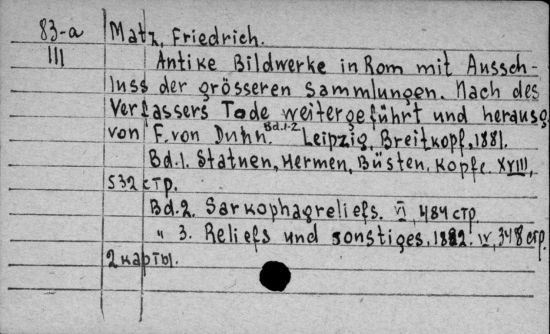 83-a Matz, Friedrich.
III Antike Bildwerke in Rom mit Aussch-
luss der grösseren Sammlungen. Nach des
Verfassers Tode weitergeführt und herausg.
von F. von Duhn. Bd.1-2 Leipzig, Breitkopf, 1881.
Bd.1. Statuen, Hermen, Büsten, Köpfe. XVIII,
532 стр.
Bd.2. Sarkophagreliefs. VI, 484 стр.
" 3. Reliefs und sonstiges, 1882. IV, 348 стр.
2 карты.